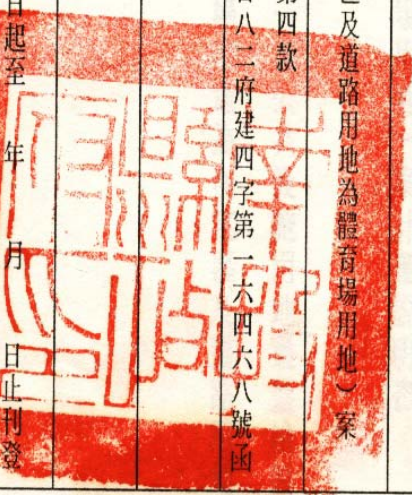 及道路用地為體育場用地）案
第四款
八二府建四字第一六四六八號函
日起至 年 月 日止刊登